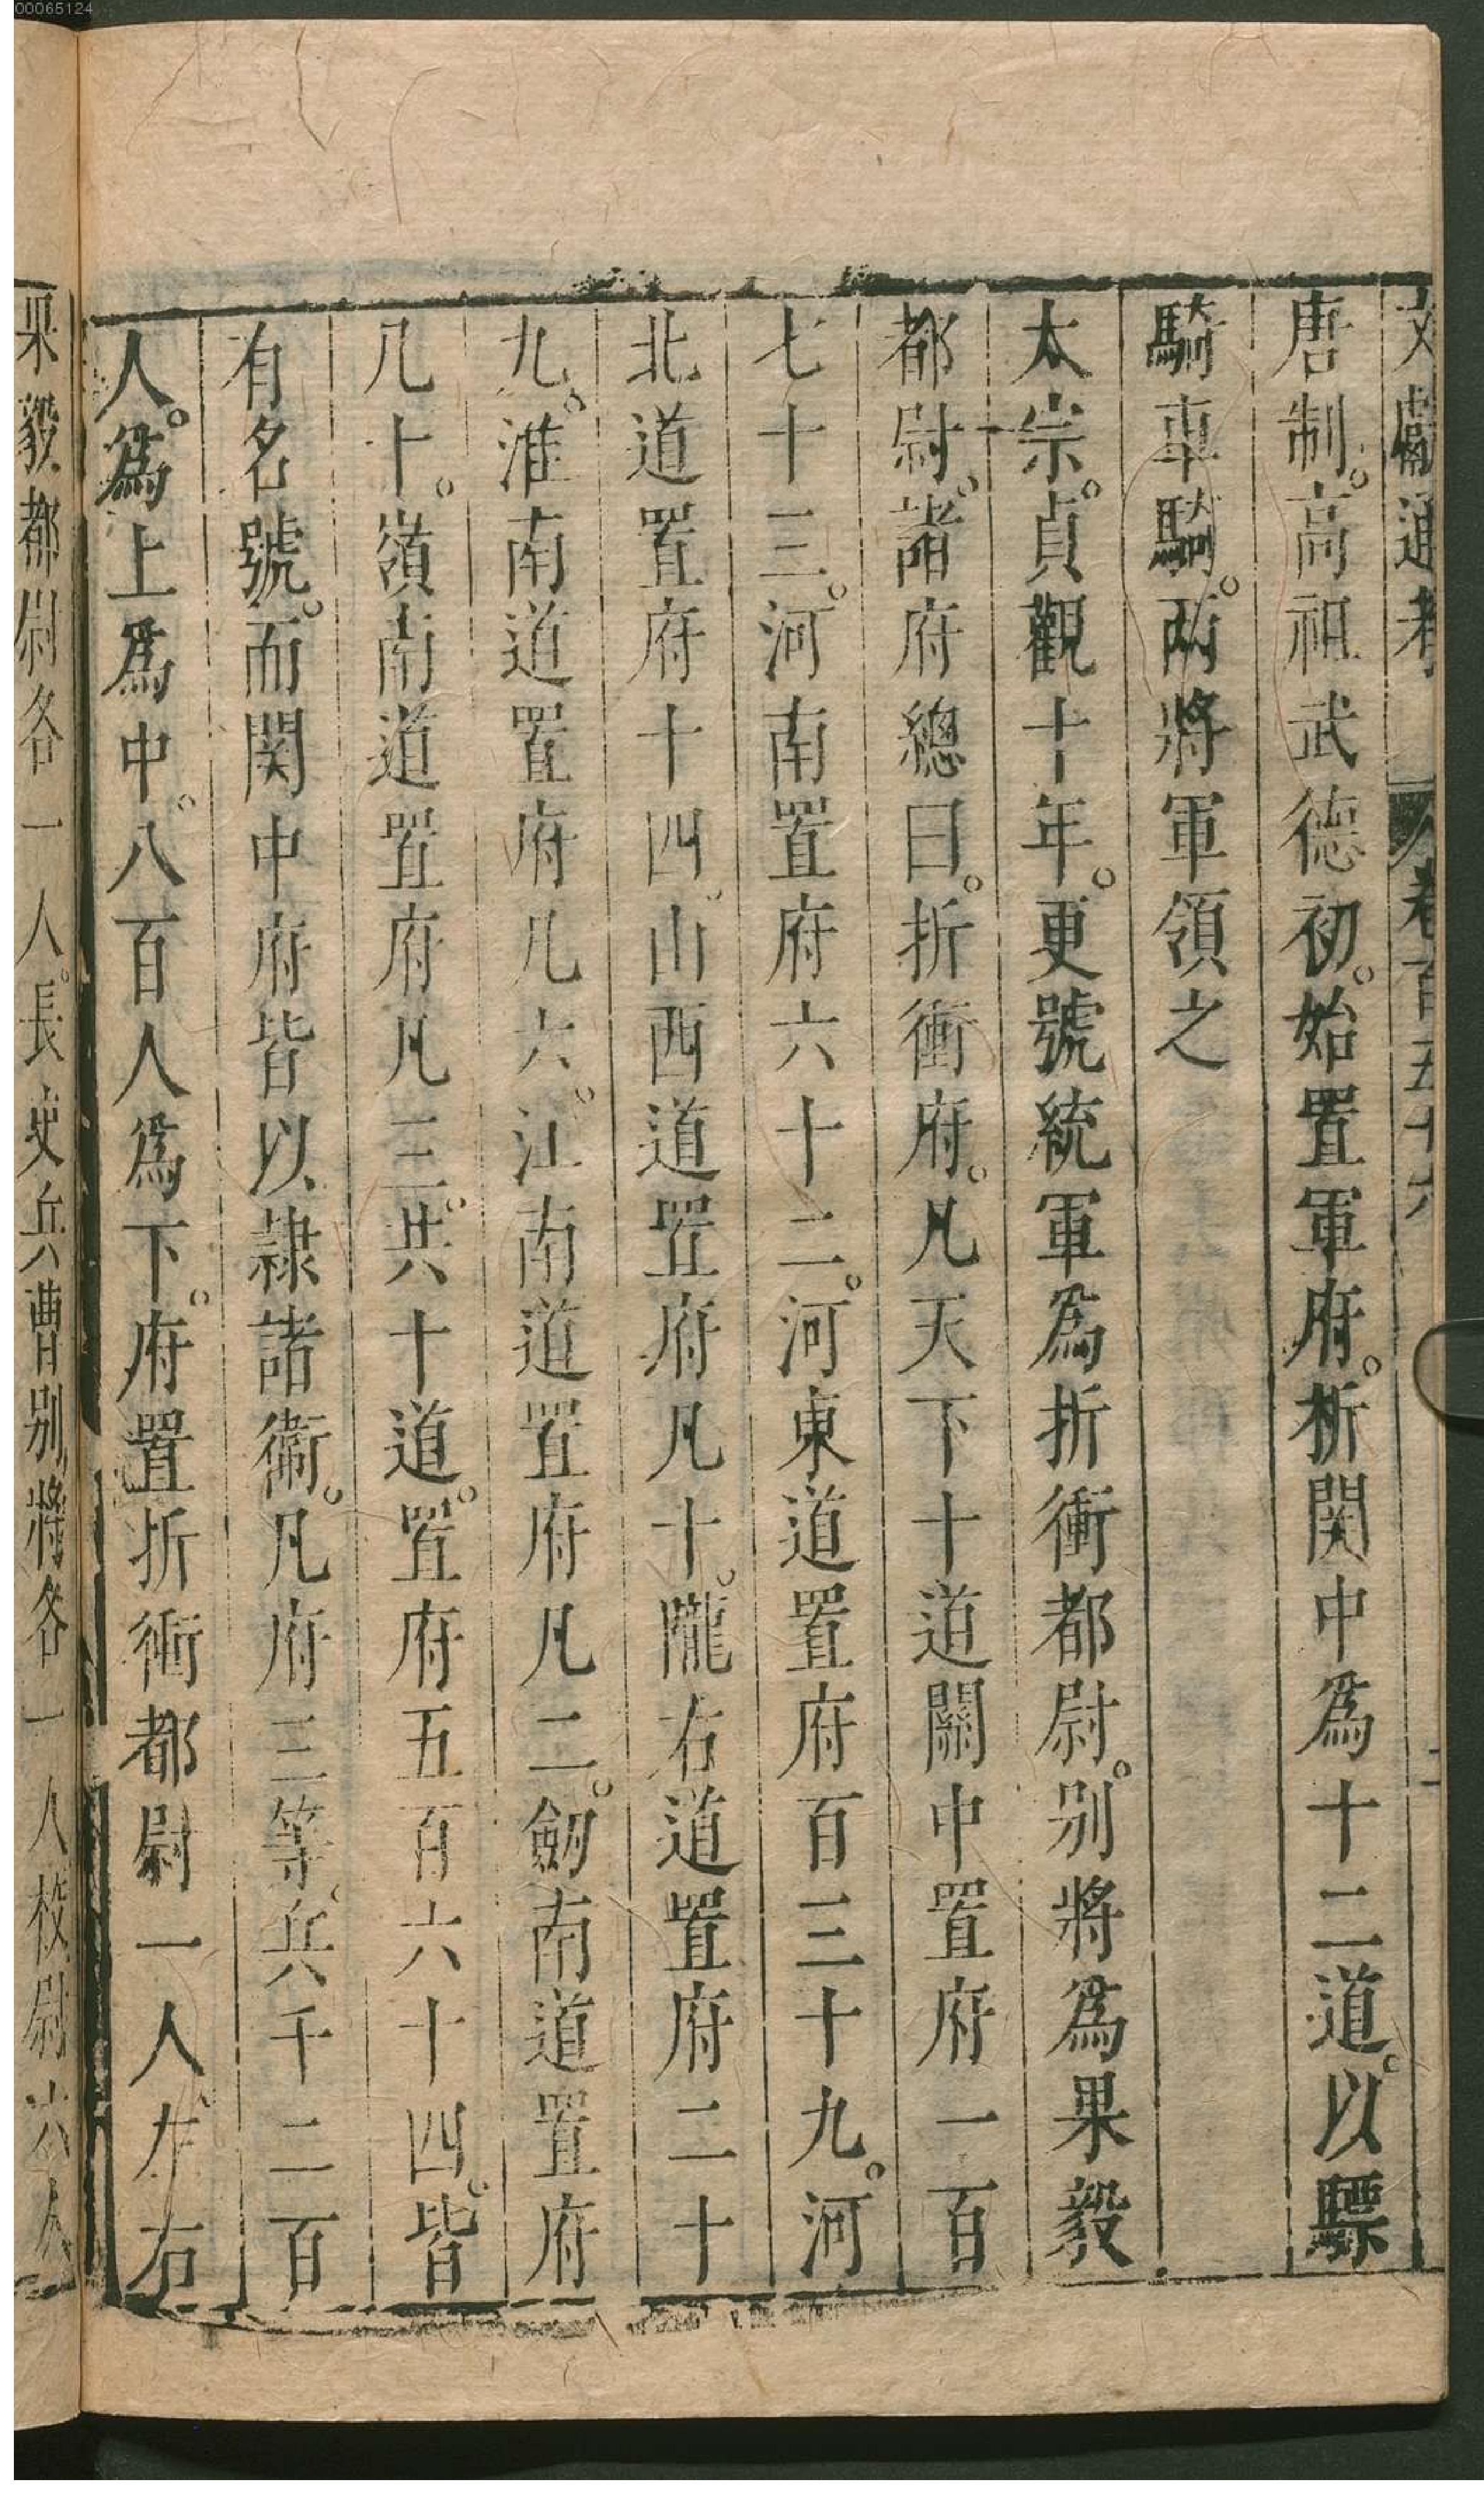 00065124
文獻通考 卷百五十六 二
唐制。高祖武德初。始置軍府。析関中為十二道。以驃
騎車騎。兩將軍領之
太宗。貞觀十年。更號統軍為折衝都尉。別將為果毅
都尉。諸府總曰。折衝府。凡天下十道關中置府一百
七十三。河南置府六十二。河東道置府百三十九。河
北道置府十四。山西道置府凡十。隴右道置府二十
九。淮南道置府凡六。江南道置府凡二。劒南道置府
凡十。嶺南道置府凡三。共十道。置府五百六十四。皆
有名號。而関中府皆以隷諸衛。凡府三等。兵千二百
人。為上為中。八百人為下。府置折衝都尉一人。左右
果毅都尉各一人。長史兵曹別將各一人校尉六人